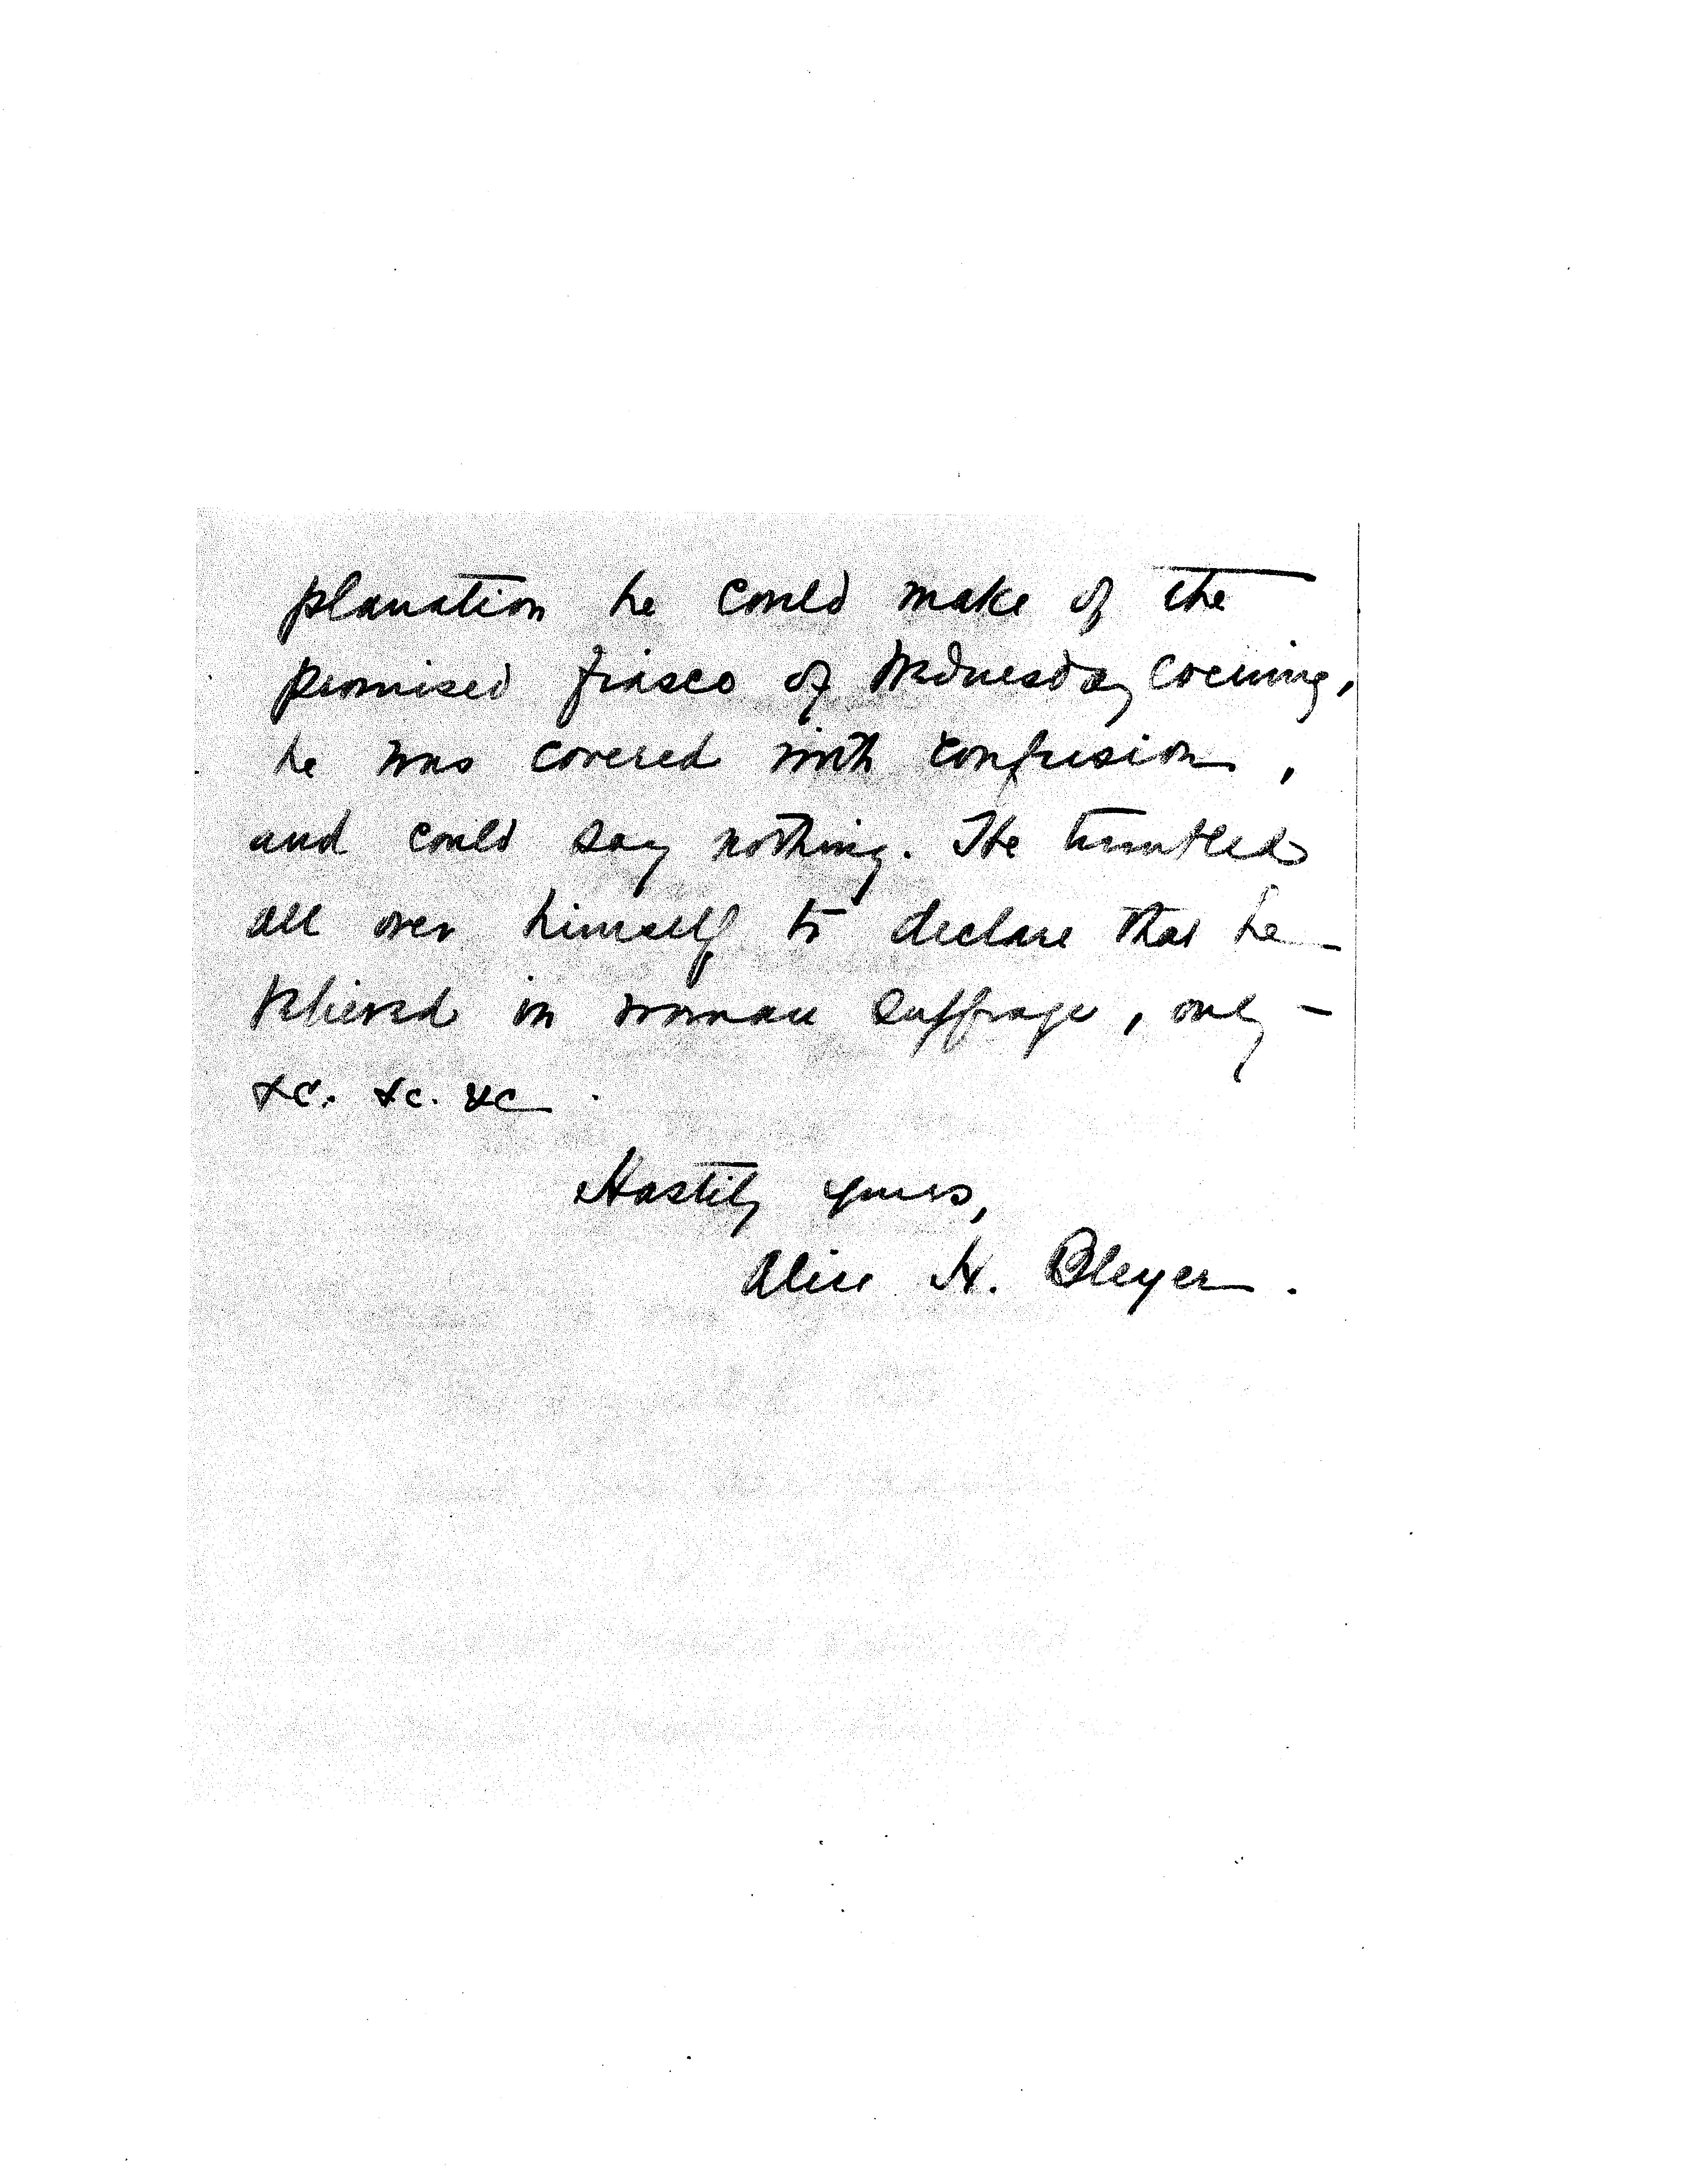 planation he could make of the
promised fiasco of Wednesday evening,
he was covered with confusion,
and could say nothing. He tumbled
all over himself to declare that he
believed in woman suffrage, only –
&c. &c. &c.
Hastily yours,
Alice H. Bleyer.